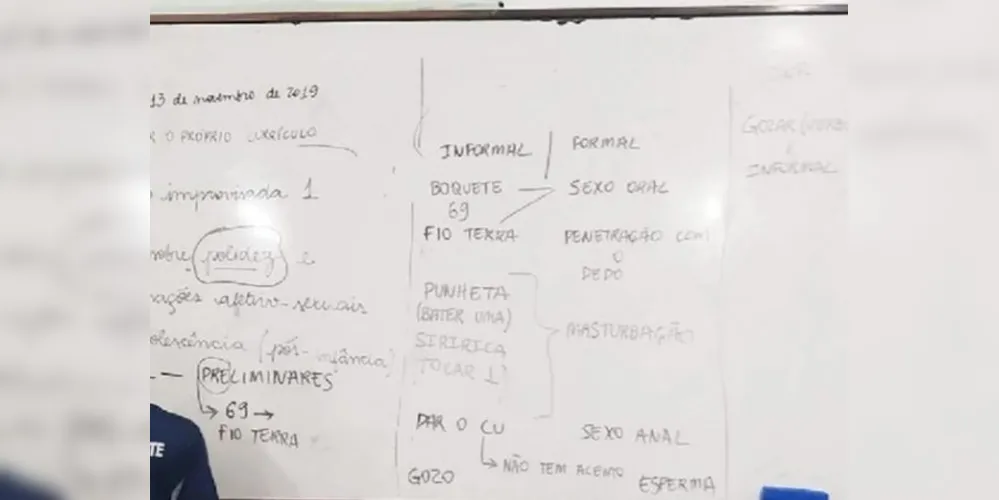 13 de novembro de 2019
R O PRÓPRIO CURRÍCULO
improvisada 1
sobre polidez e
rações afetivo-sexuais
olescência (pós-infância)
— PRELIMINARES
69 →
FIO TERRA
TE
INFORMAL
FORMAL
BOQUETE
SEXO ORAL
69
FIO TERRA
PENETRAÇÃO COM
O
DEDO
PUNHETA
(BATER UMA)
SIRIRICA
TOCAR 1
MASTURBAÇÃO
DAR O CU
SEXO ANAL
NÃO TEM ACENTO
GOZO
ESPERMA
GOZAR
É
INFORMAL